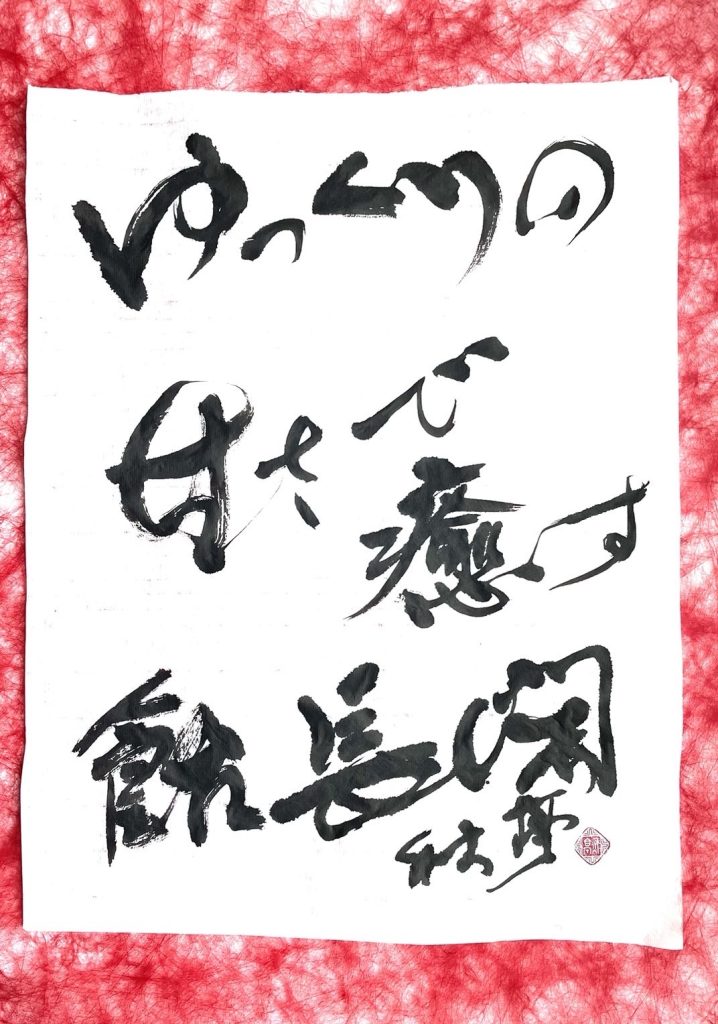 ゆっくりの
甘さで癒す
飴長閑